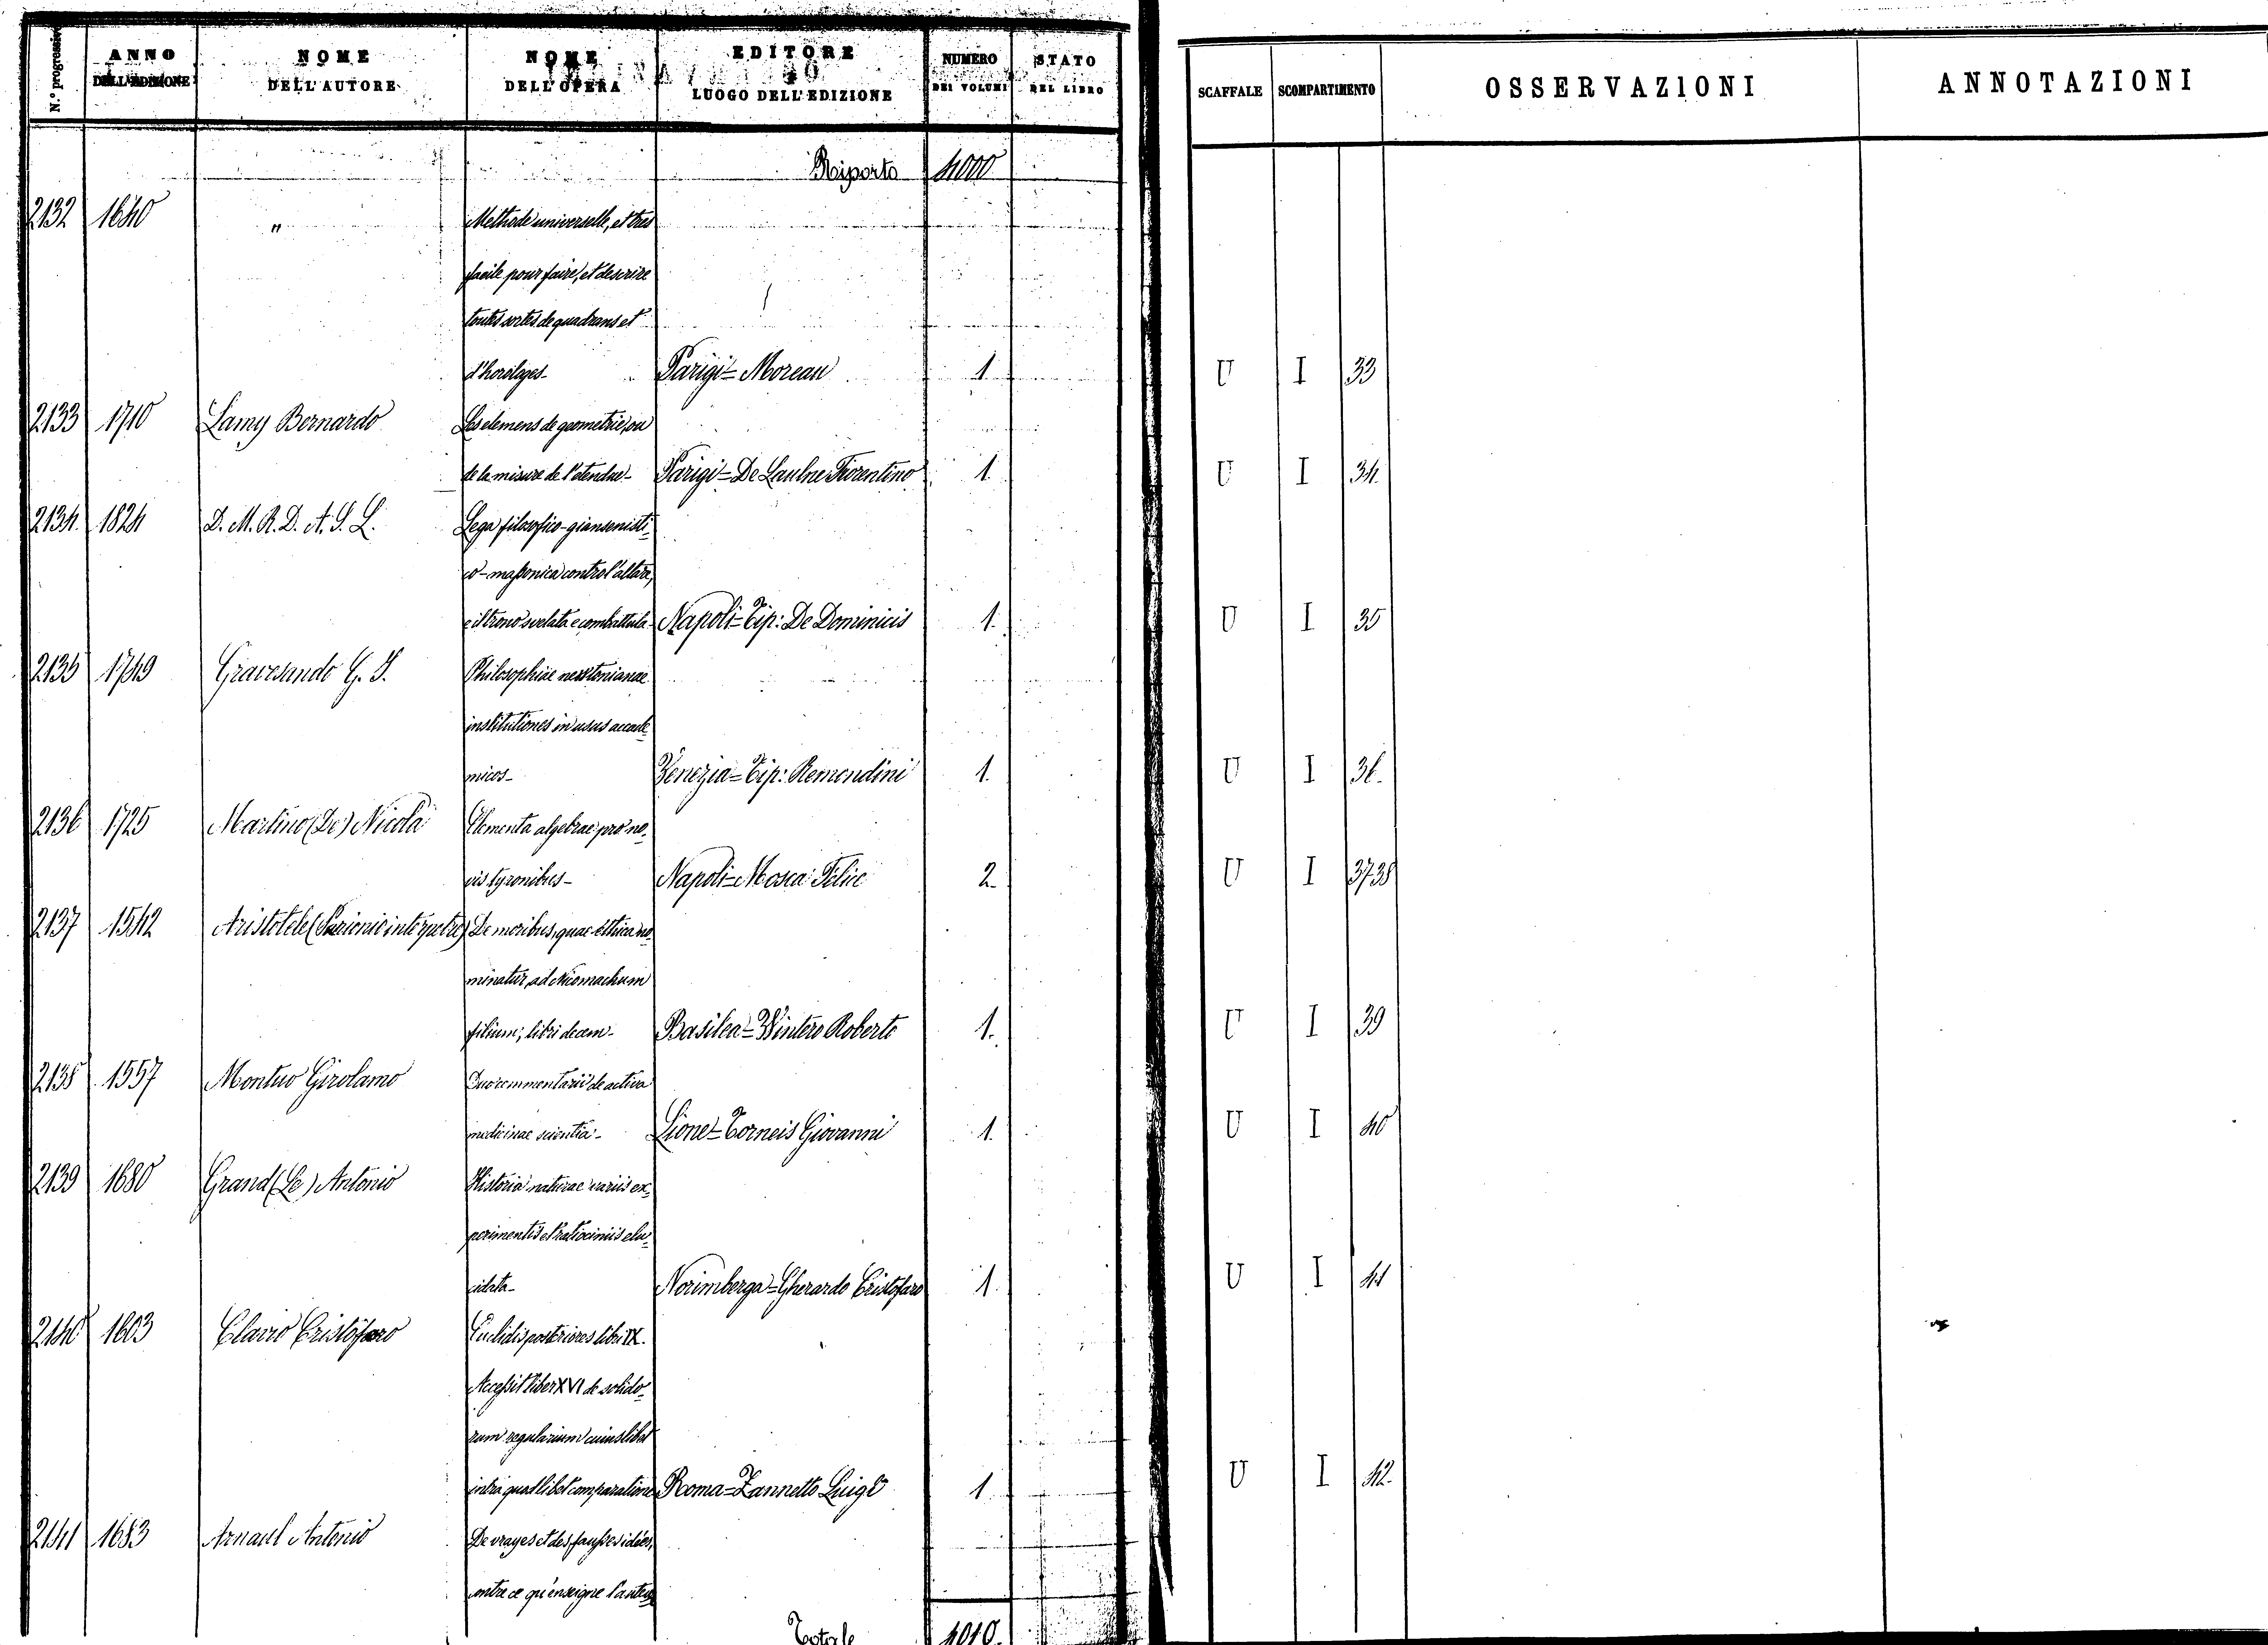 N.º progressivo ANNO DELL'EDIZIONE NOME DELL'AUTORE NOME DELL'OPERA EDITORE E LUOGO DELL'EDIZIONE NUMERO DEI VOLUMI STATO DEL LIBRO SCAFFALE SCOMPARTIMENTO OSSERVAZIONI ANNOTAZIONI
Riporto 4000
2132 1640 " Methode universelle, et tres
facile pour faire, et descrire
toutes sortes de quadrans et
d'horologes- Parigi=Moreau 1 U I 33
2133 1710 Lamy Bernardo Les elemens de geometrie, ou
de la misure de l'etendue- Parigi=De Laulne Fiorentino 1 U I 34.
2134. 1824 D. M. R. D. A. S. L. Lega filosofico-giansenisti-
co-massonica contro l'altare,
e il trono svelata e combattuta- Napoli=Tip: De Dominicis 1. U I 35
2135 1749 Gravesando G. S. Philosophiae newtonianae
institutiones in usus accade-
micos- Venezia=Tip: Remondini 1. U I 36.
2136 1725 Martino (De) Nicola Elementa algebrae pro no-
vis tyronibus- Napoli=Mosca Felice 2. U I 37 38
2137 1542 Aristotele ( interpetre) De moribus, quae ethica no-
minatur, ad Nicomachum
filium; libri decem- Basilea=Wintero Roberto 1. U I 39
2138 1557 Montuo Girolamo Duo commentarii de activa
medicinae scientia- Lione=Torneis Giovanni 1. U I 40
2139 1680 Grand (Le) Antonio Historia naturae variis ex-
perimentis et ratiociniis elu-
cidata- Norimberga=Gherardo Cristofaro 1. U I 41
2140 1603 Clavio Cristofaro Euclidis posteriores libri IX.
Accessit liber XVI de solido-
rum regularium cuiuslibet
intra quodlibet comparatione Roma=Zannetto Luigi 1 U I 42.
2141 1683 Arnaul Antonio De vrayes et des fausses idées,
contre ce qu'enseigne l'auteur
Totale 4010.